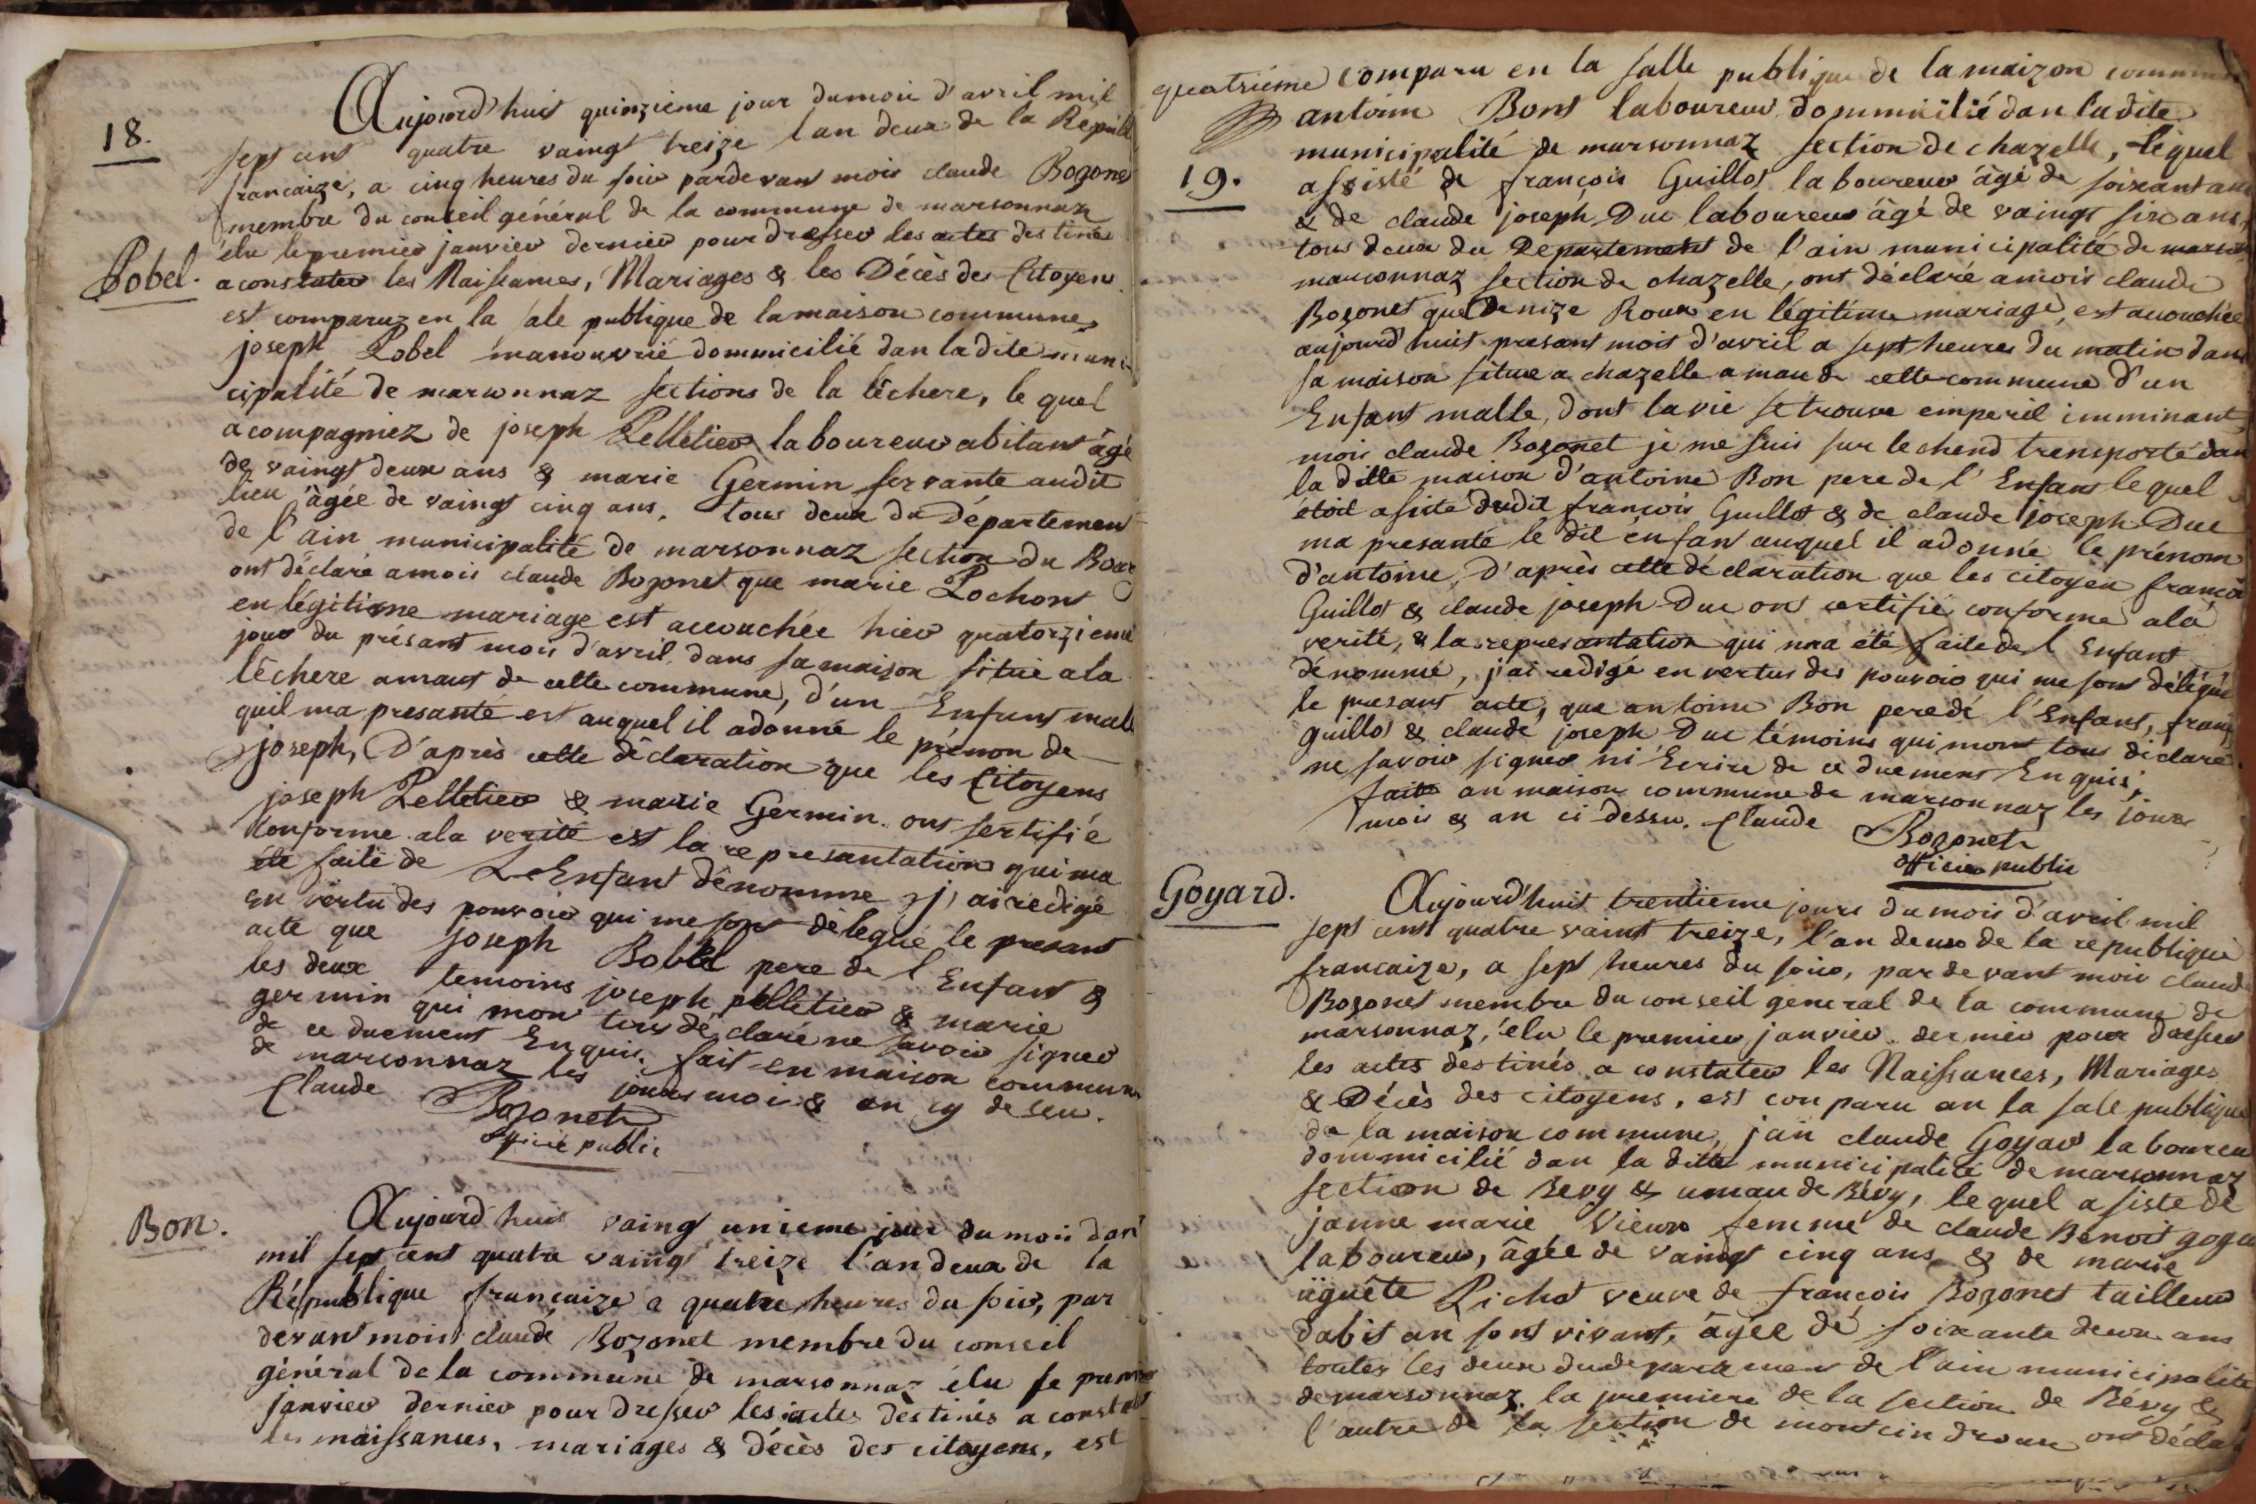 18.
Aujourd'huit quinzieme jour dumois d'avril mil
sept cent quatre vaingt treize lan deux de la Republ
francaize, a cinq heures du soir pardevant mois claude Bozonet
membre du conseil général de la commune de marsonnaz
élu le premier janvier dernier pour dresser les actes destinés
Pobel.
a constater les Naissances, Mariages & les Décès des Citoyens
est comparuz en la sale publique de lamaison commune
joseph Pobel manouvrié dommicilié dan ladite muni
cipalité de marsonnaz sections de la lêchere, le quel
acompagniez de joseph Pelletier laboureur abitant âgé
de vaingt deux ans & marie Germin servante audit
lieu âgée de vaingt cinq ans, tous deux du Département
de l'ain municipalité de marsonnaz section du Bourg
ont déclaré a mois claude Bozonet que marie Pochont
en légitime mariage est accouchée hier quatorzieme
jour du présant mois d'avril dans sa maison situé a la
lêchere amaut de cette commune, d'un Enfant malle
quil ma presanté est auquel il adonné le prénon de
joseph, D'après cette déclaration que les Citoyens
joseph Pelletier & marie Germin ont sertifié
Konforme ala verité est la representation qui ma
été faite de L'Enfant dénomme, j'ai redigé
en vertu des pouvoir qui me sont délegué le presant
acte que joseph Pobel pere de l'Enfant &
les deux temoins joseph pelletier & marie
germin qui mont tous déclaré ne savoir signer
de ce duement Enquis. fait en maison commune
de marsonnaz les jours mois & an cy desu.
Claude Bozonet
officié public
Bon.
Aujourd'huit vaingt unieme jour du mois d'avri
mil sept cent quatre vaingt treize l'an deux de la
République francaize a quatre heures du soir, par
devant mois claude Bozonet membre du conseil
général de la commune de marsonnaz élu le premier
janvier dernier pour dresser les actes destinés a constater
les naissances, mariages & décès des citoyens, est
quatriéme comparu en la salle publique de la maizon commune
antoine Bont laboureur dommicilié dan ladite
municipalité de marsonnaz section de chazelle, lequel
19.
assisté de françois Guillot laboureur âgé de soixant ans
& de claude joseph Duc laboureur âgé de vaingt six ans,
tous deux du Departement de l'ain municipalité de marson
marconnaz section de chazelle, ont déclaré amois claude
Bozonet que Denize Roux en légitime mariage, est acouchée
aujourd'huit presant mois d'avril a sept heures du matin dans
sa maison situé a chazelle amau de cette commune d'un
Enfant malle, dont la vie se trouve emperil imminant
mois claude Bozonet je me suis sur le chend transporté dan
la ditte maison d'antoine Bon pere de l'Enfant lequel
étoit asisté dudit françois Guillot & de claude joseph Duc
ma presanté le dit enfant auquel il adonné le prénom
d'antoine, D'après cette déclaration que les citoyen françois
Guillot & claude joseph Duc ont certifié conforme ala
verité, & la represantation qui ma été faite de l'Enfant
dénommé, j'ai redigé en vertus des pouvoir qui me sont délégué
le presant acte, que antoine Bon pere de l'Enfant, franç
guillot & claude joseph Duc témoins qui mont tous déclaré
ne savoir signer ni Ecrire de ce duement Enquis;
faite an maison commune de marsonnaz les jours
mois & an ci dessu. Claude Bozonet
officier public
Goyard.
Aujourd'huit trentieme jours du mois d'avril mil
sept cent quatre vaint treize, l'an deux de la republique
francaize, a sept heures du soir, par devant mois claude
Bozonet membre du conseil general de la commune de
marsonnaz, élu le premier janvier dernier pour dresser
les actes destinés a constater les Naissances, Mariages
& Décès des citoyens, est conparu an la sale publique
de la maison commune, jan claude Goyar laboureu
dommicilié dan la ditte municipalité de marsonnaz
section de Bevy & amau de Bévy, lequel asisté de
janne marie Vieux femme de claude Benoit goya
laboureur, âgée de vaingt cinq ans & de marie
üguête Pichot veuve de françois Bozonet tailleur
dabit an sont vivant, âgée de soixante deux ans
toutes les deux dudepartement de l'ain municipalité
de marsonnaz, la premiere de la section de Bévy &
l'autre de la section de montcindroux ont décla